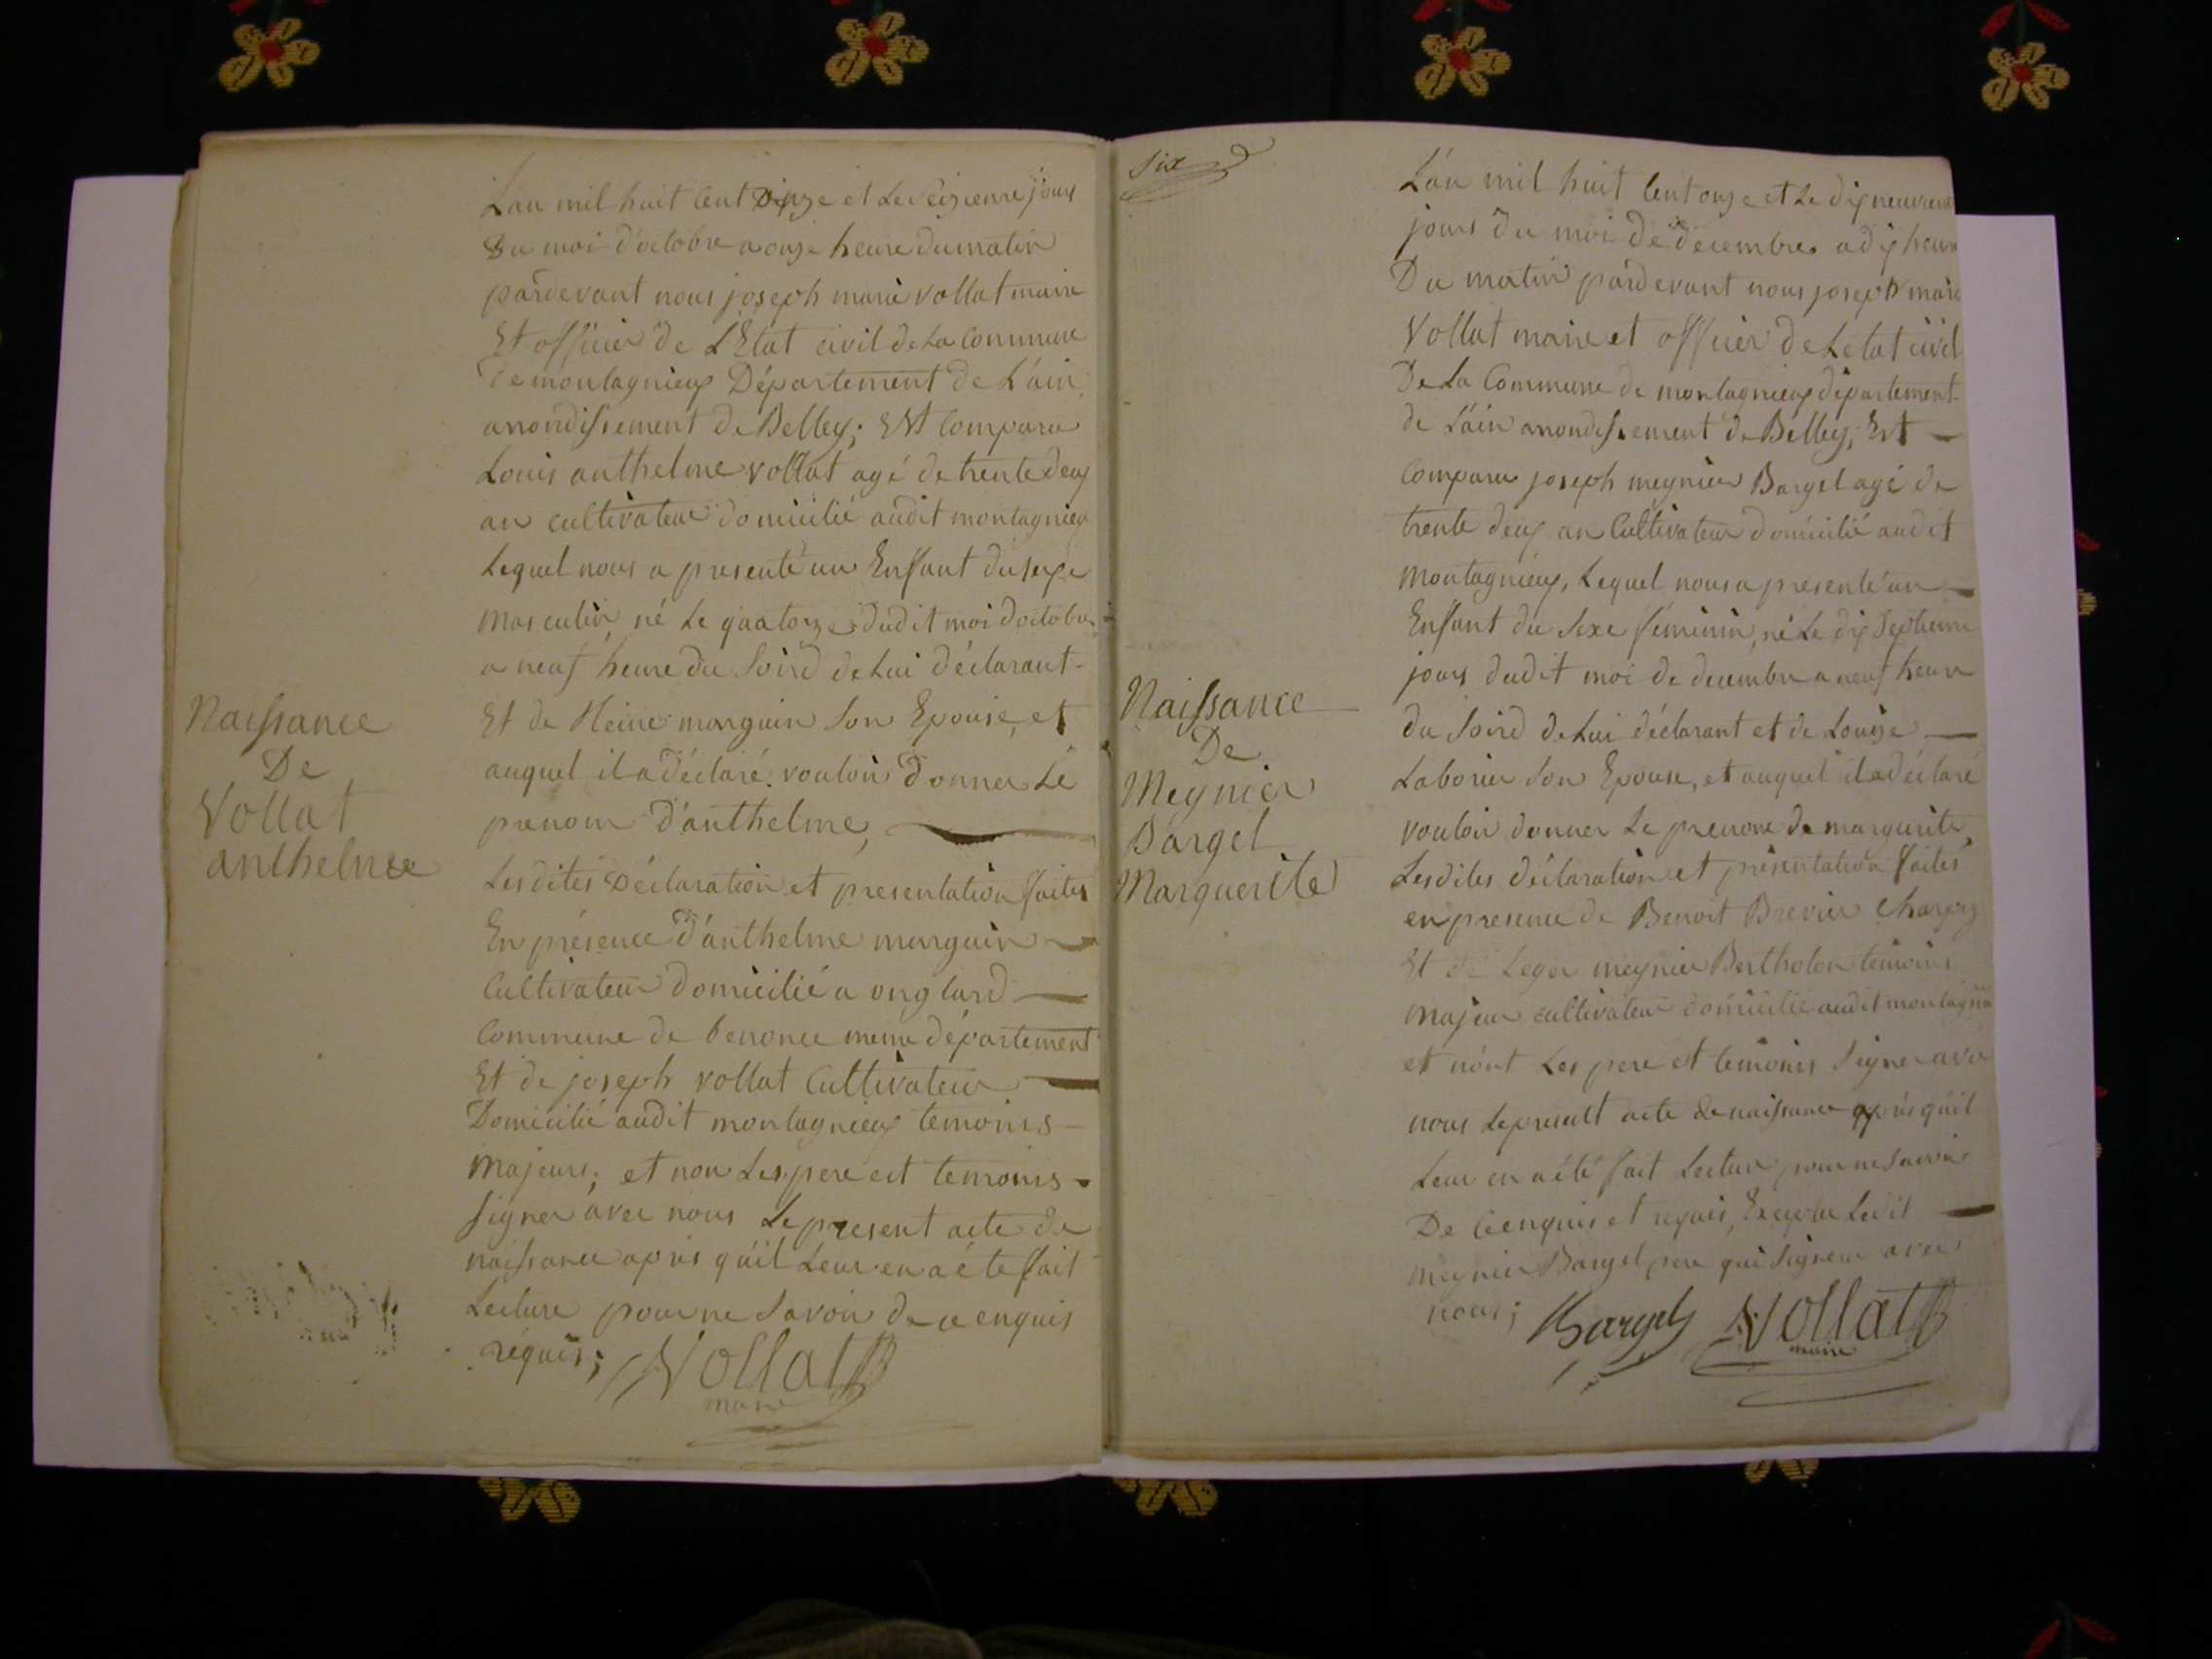 Naissance
De
Vollat
anthelme
Lan mil huit Cent onze et Le seizieme jours
Du moi d'octobre a onze heure du matin
pardevant nous joseph marie vollat maire
Et officier de L'Etat civil de La Commune
De montagnieux Département de L'ain
arrondissement de Belley; Est Comparu
Louis anthelme vollat agé de trente deux
an cultivateur domicilié audit montagnieu
Lequel nous a presenté un Enffant du sexe
masculin né Le quatorze dudit moi doctobre
a neuf heure du Soird de Lui déclarant
Et de Heine marguin Son Epouse, et
auquel il a déclaré vouloir donner Le
prenom d'anthelme,
Lesdites déclaration et presentation ffaites
En présence d'anthelme marguin
Cultivateur domicilié a onglard
Commune de benonce meme département
Et de joseph vollat Cultivateur
Domicilié audit montagnieux temoins
majeurs; et non Les pere est temoins
signer avec nous Le present acte de
naissance apris qu'il Leur en a éte ffait
Lecture pour ne Savoir de ce enquis
réquis; Vollat
maire
Six
Naissance
De
Meynier
Bargel
Marguerite
L'an mil huit Cent onze et Le dix neuvieme
jours du moi de decembre a dix heure
Du matin pardevant nous joseph marie
Vollat maire et officier de Letat civil
De La Commune de montagnieux département
de L'ain arrondissement de Belley; Est
Comparu joseph meynier Bargel agé de
trente deux an Cultivateur domicilié audit
montagnieux, Lequel nous a presenté un
Enffant du Sexe fféminin, né Le dix Septieme
jours dudit moi de decembre a neuf heure
du Soird de Lui déclarant et de Louise
Laborier Son Epouse, et auquel il a déclaré
vouloir donner Le prenom de marguerite,
Lesdites déclaration et présentation ffaites
en presence de Benoit Brevier
Et de Leger meynier Bertholon temoins
majeur cultivateur domicilié audit montagnie
et n'ont Les pere et temoins Signer avec
nous Le present acte de naissance après qu'il
Leur en a été fait Lecture pour ne Savoir
De ce enquis et requis, Excepte Ledit
meynier Bargel pere qui Signera avec
nous; Bargel Vollat
maire